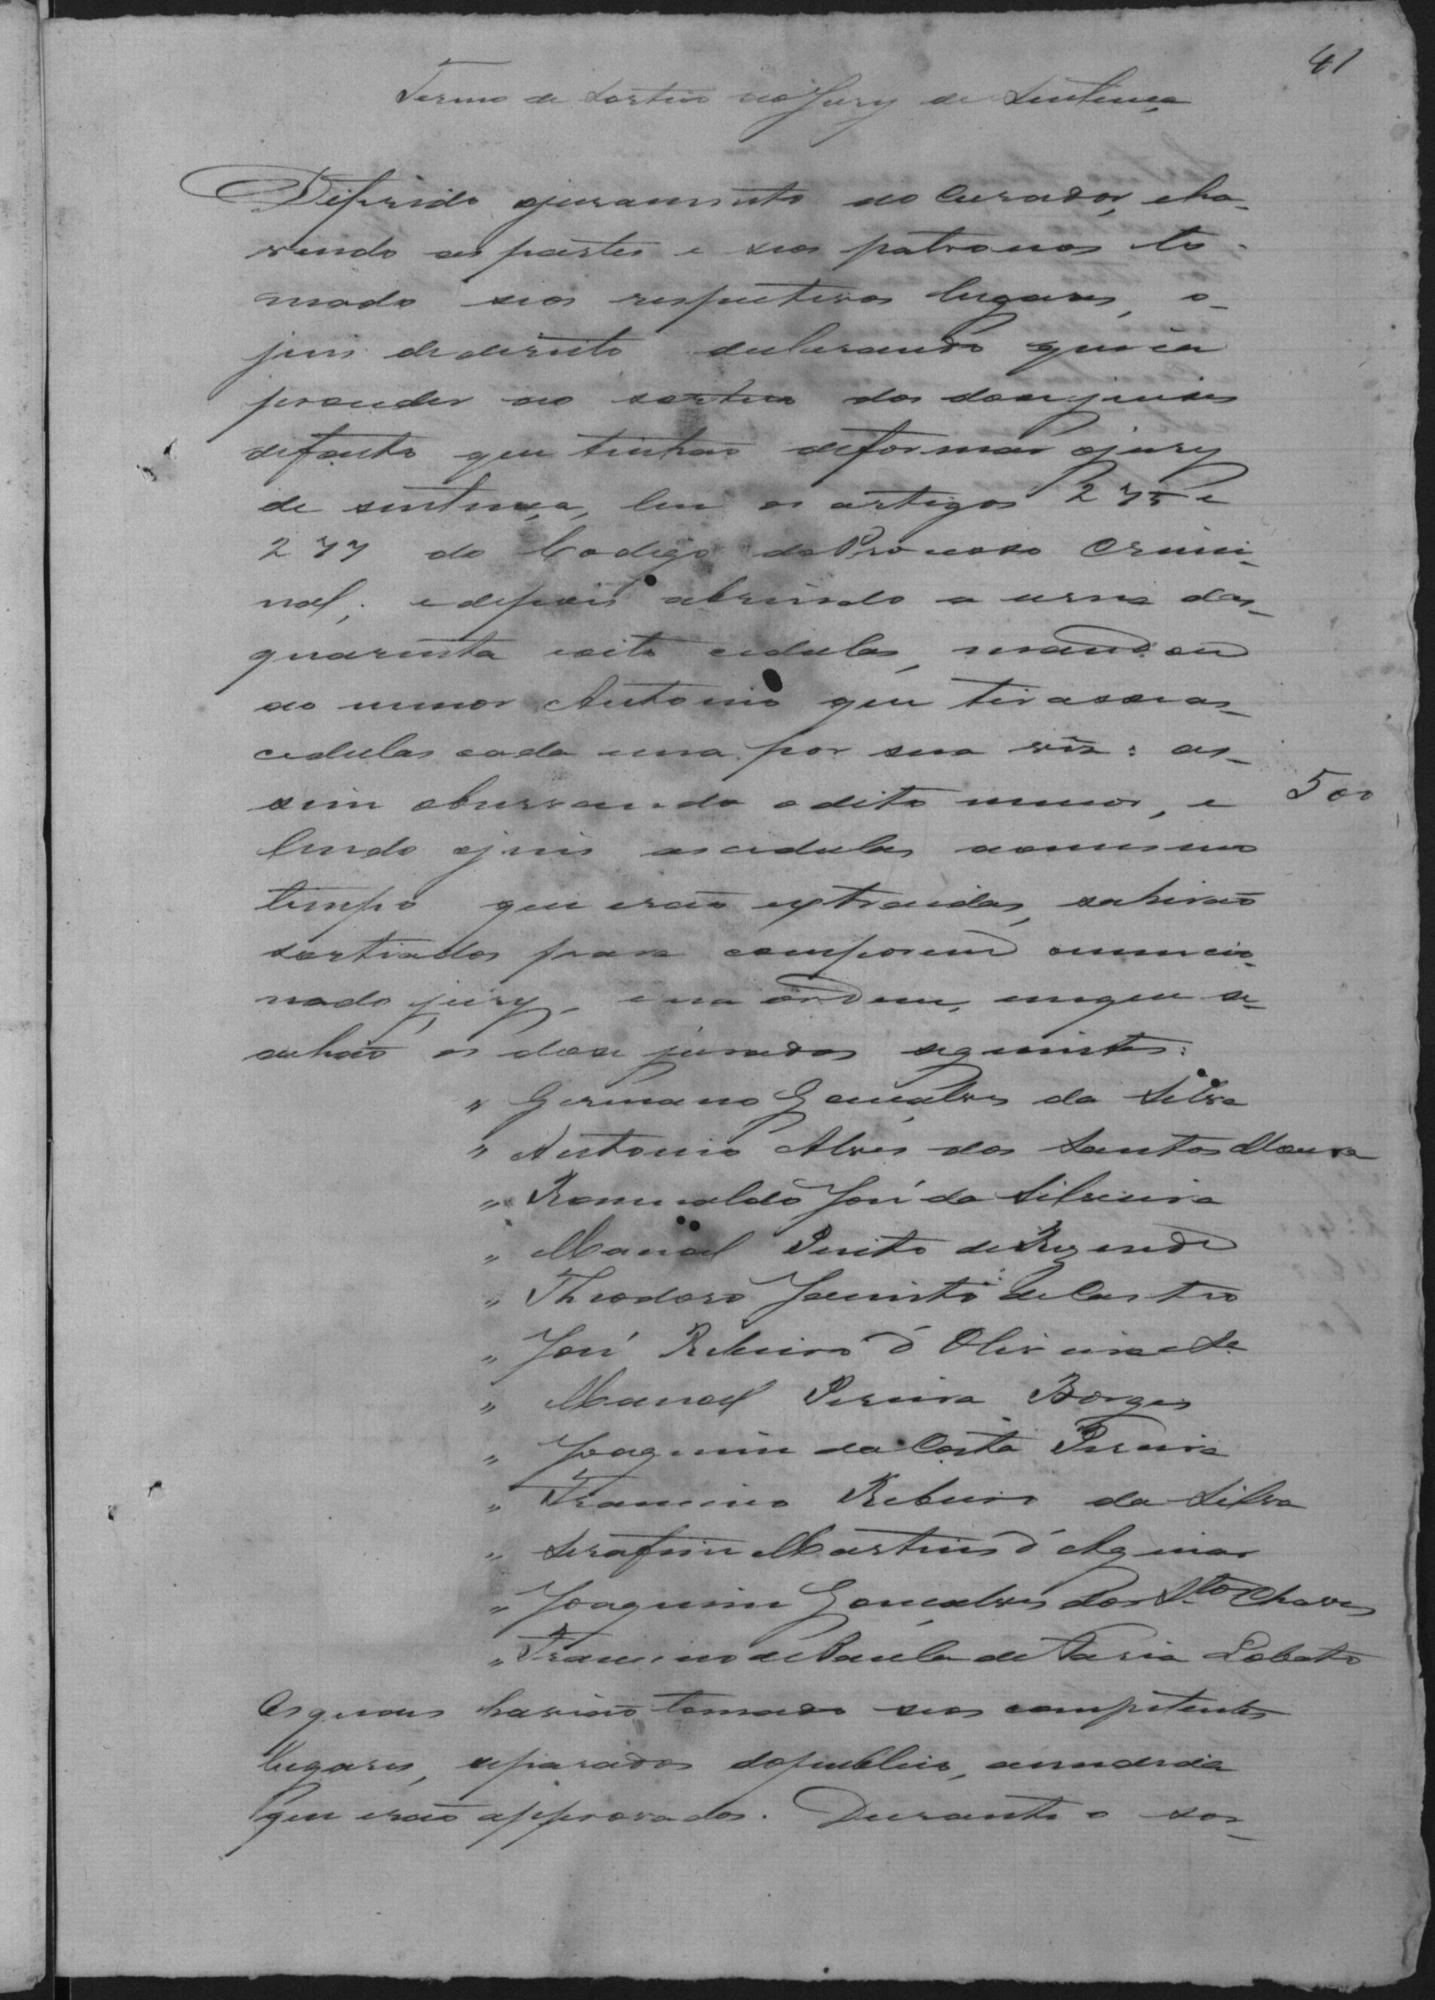 41
Termo de Sorteio do Jury de Sentença
Diferido ojuramento ao Curador, eha-
vendo as partes e seos patronos to-
mado seos respectivos lugares, o
juis dedireito declarando que ia
proceder ao sorteio dos dose juises
defacto que tinhão deformar ojury
de sentença, leu os artigos 275 e
277 do Codigo doProcesso Crimi-
nal; edepois abrindo a urna das
quarenta eoito cedulas, mandou
ao menor Antonio que tirasse as
cedulas cada uma por sua vez: as-
sim observando o dito menor, e
500
lendo ojuis ascedulas aomesmo
tempo que erão extraidas, sahirão
sortiados para comporem omencio-
nado jury, e na ordem, emque se
achão os dose jurados seguintes:
" Germano Gonçalves da Silva
" Antonio Alves dos Santos Moura
" Romualdo José da Silveira
" Manoel Pinto de Rezende
" Theodoro Jacinto de Castro
" José Ribeiro d'Oliveira Sª
" Manoel Pereira Borges
" Joaquim da Costa Pereira
" Francisco Ribeiro da Silva
" Serafim Martins d'Aguiar
" Joaquim Gonçalves dos Stos Chaves
" Francisco de Paula de Faria Lobato
Os quaes havião tomado seos competentes
lugares, separados dopublico, amedida
que erão approvados. Durante o sor-